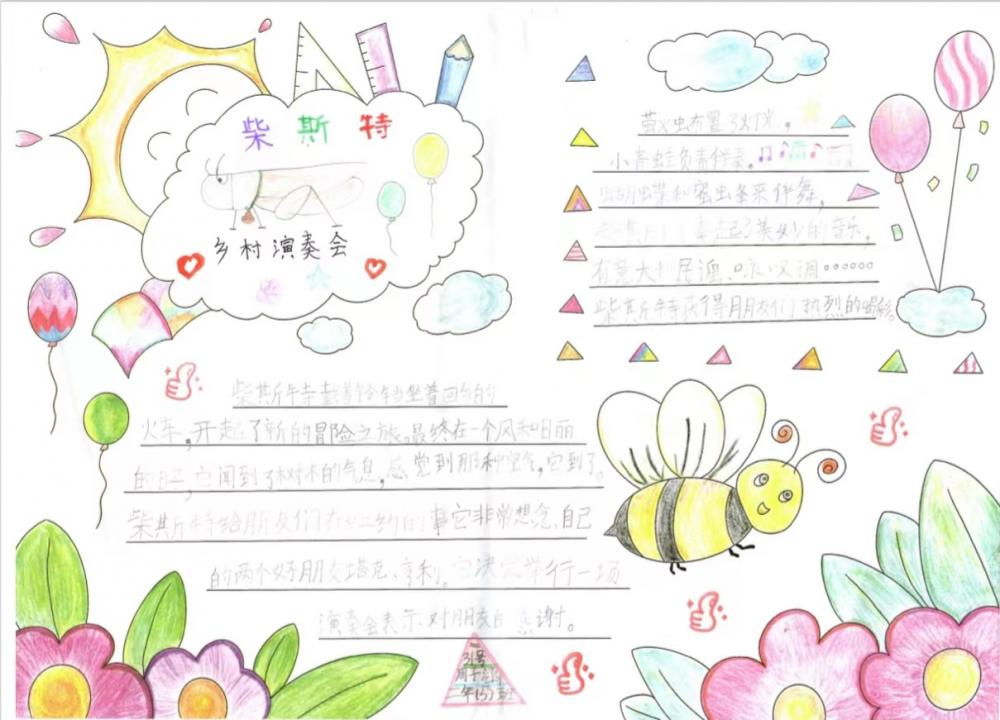 柴斯特
乡村演奏会
柴斯特戴着铃铛坐着回的
火车,开起了新的冒险之旅。最终在一个风和日丽
的日子,它闻到了树木的气息,感觉到那种空气,它到了。
柴斯特给朋友们在纽约的事它非常想念、自己
的两个好朋友塔克、亨利。它决定举行一场
演奏会表示、对朋友的感谢。
31号
年(5)班
萤火虫布置了灯光,
小青蛙负责伴奏,
蝴蝶和蜜虫条来伴舞,
起了美妙的音乐,
有意大利民谣、咏叹调……
柴斯特获得朋友们热烈的喝彩。